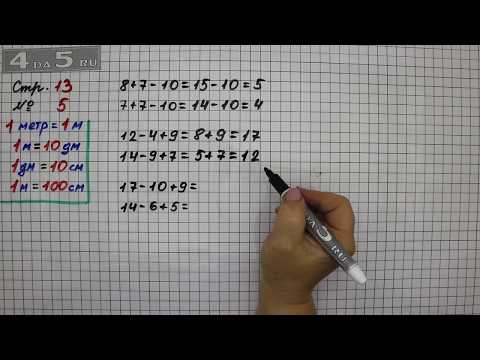 4 ДА 5 RU
Стр. 13
№ 5
1 метр = 1 м
1 м = 10 дм
1 дм = 10 см
1 м = 100 см
8 + 7 - 10 = 15 - 10 = 5
7 + 7 - 10 = 14 - 10 = 4
12 - 4 + 9 = 8 + 9 = 17
14 - 9 + 7 = 5 + 7 = 12
17 - 10 + 9 =
14 - 6 + 5 =